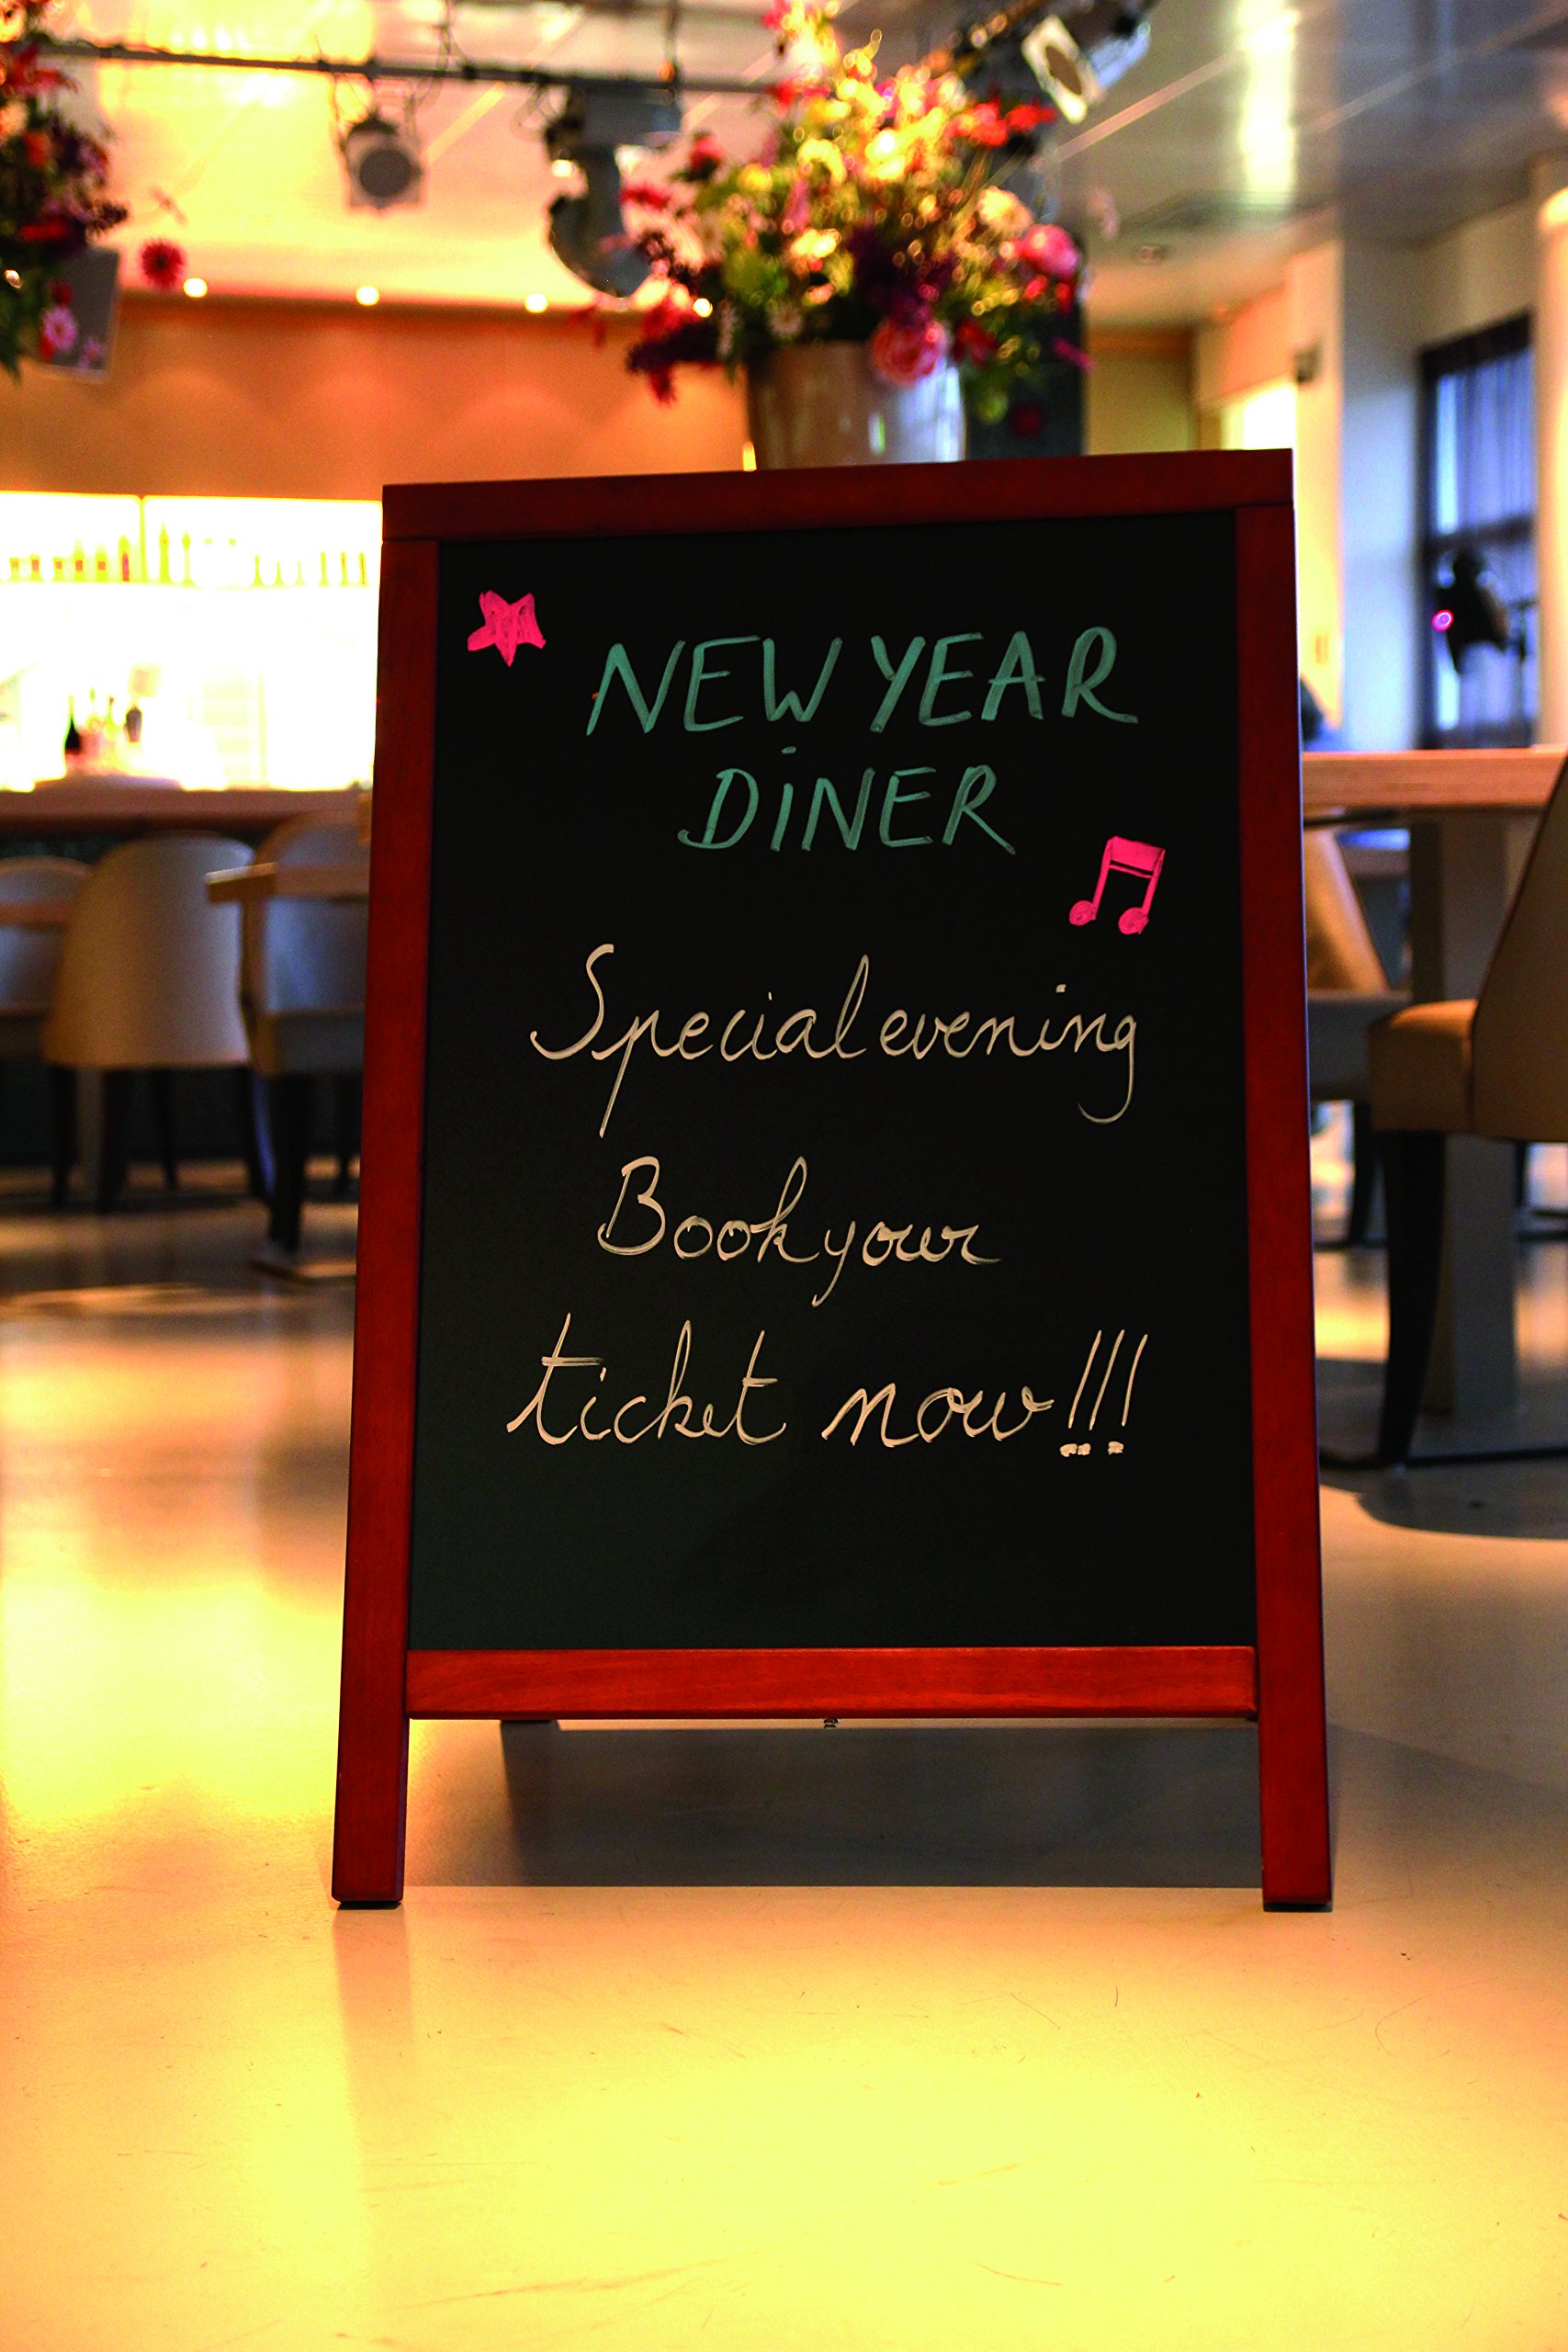 NEW YEAR
DiNER
Special evening
Book your
ticket now!!!